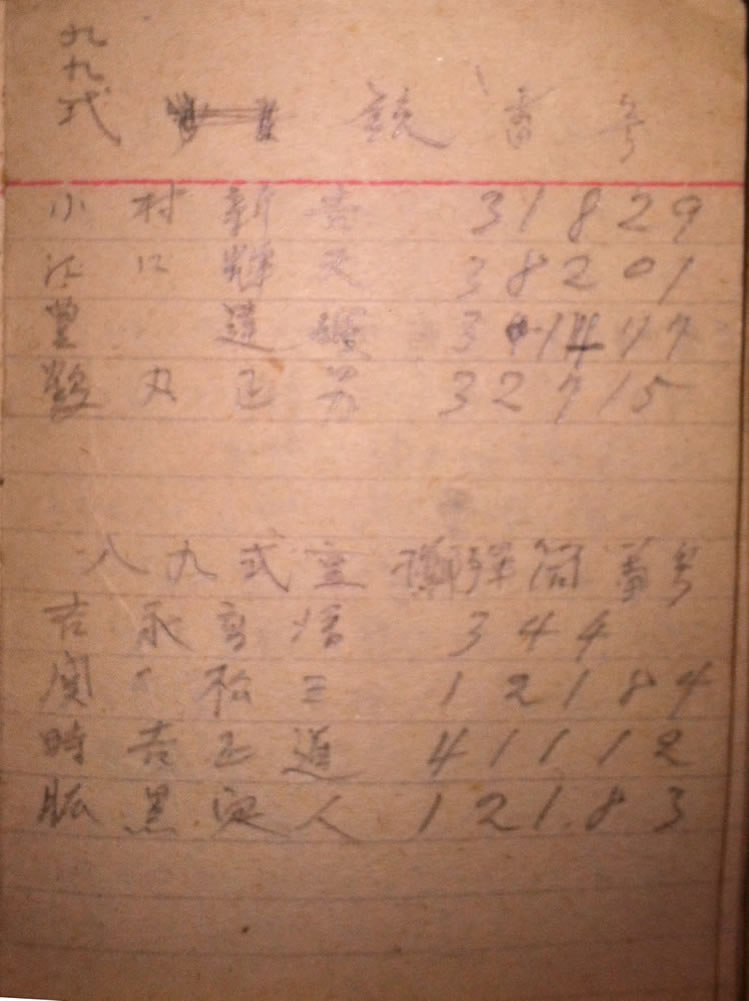 九九式 銃番号
小村新吉 31829
江口輝夫 38201
豊 3 77
丸正男 32715
八九式重擲弾筒番号
吉永 344
関 松三 12184
時吉正道 41112
脈黒 人 12183